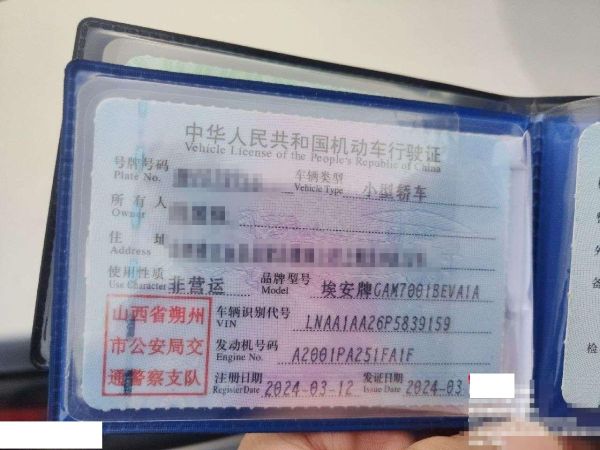 中华人民共和国机动车行驶证
Vehicle License of the People's Republic of China
号牌号码 车辆类型 小型轿车
Plate No. Vehicle Type
所有人
Owner
住址
Address
使用性质 非营运 品牌型号 埃安牌GAM7001BEVA1A
Use Character Model
山西省朔州
市公安局交
通警察支队
车辆识别代号 LNAA1AA26P5839159
VIN
发动机号码 A2001PA251FA1F
Engine No.
注册日期 2024-03-12 发证日期 2024-03
Register Date Issue Date
检